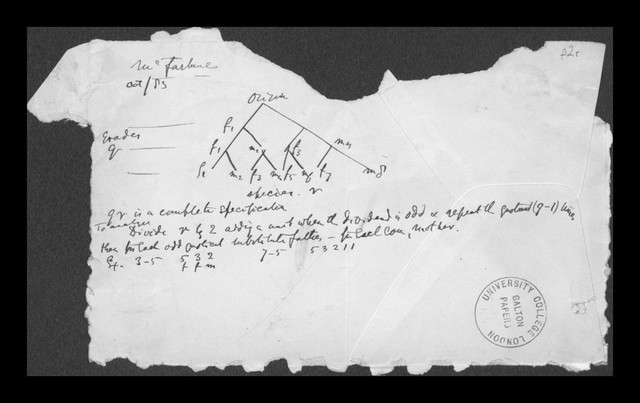 p2r
Mc Farlane
Oct/83
Origin
f1 m4
Grades
g
f1 m2 f3
f1 m2 f3 m4 f5 m6 f7 m8
species. r
gr is a complete specification
To analyse Divide r by 2 adding a unit when the dividend is odd & repeat the quotient (g-1) times
then for each odd quotient substitute father - for each even, mother.
3-5 5 3 2 7-5 5 3 2 1 1
f f m
UNIVERSITY COLLEGE LONDON
GALTON PAPERS